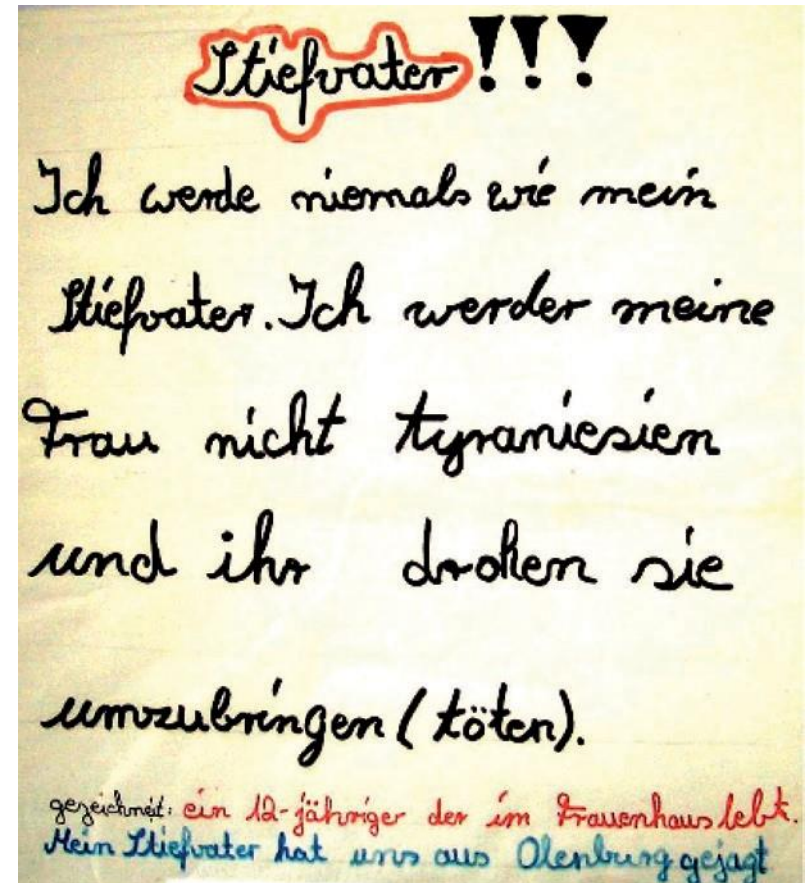 Stiefvater!!!
Ich werde niemals wie mein
Stiefvater. Ich werder meine
Frau nicht tyraniesien
und ihr drohen sie
umzubringen (töten).
gezeichnet: ein 12-jähriger der im Frauenhaus lebt.
Mein Stiefvater hat uns aus Olenburg gejagt